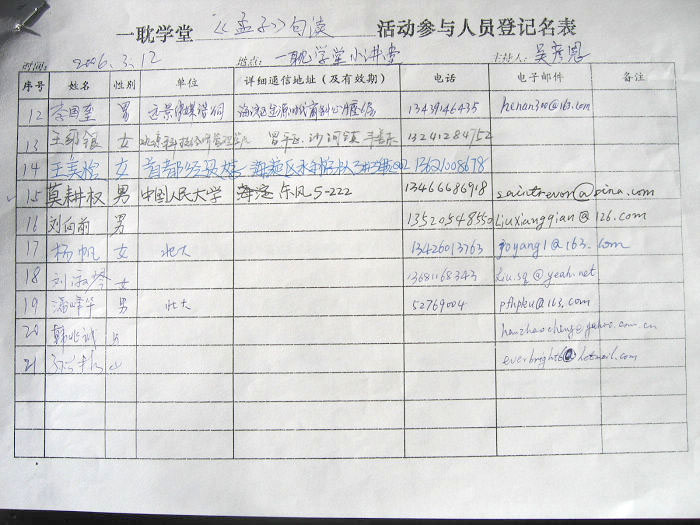 一耽学堂 《孟子》句读 活动参与人员登记名表
时间: 2006.3.12 地点: 一耽学堂小讲堂 主持人: 吴彦恩
序号 姓名 性别 单位 详细通信地址（及有效期） 电话 电子邮件 备注
12 李国玺 男 13439146435 henan300@163.com
13 女 昌平区沙河镇 13241284752
14 王美玲 女 首都经贸大 13621008678
15 莫耕权 男 中国人民大学 海淀 东风5-222 13466686918 saintrevon@sina.com
16 刘向前 男 13520548550 liuxiangqian@126.com
17 杨帆 女 北大 13426013763 goyang1@163.com
18 刘淑琴 女 13681168343 liu.sq@yeah.net
19 潘峰华 男 北大 52769004 pfhpku@163.com
20 韩兆诚 男 hanzhaocheng@yahoo.com.cn
21 everbright6@hotmail.com